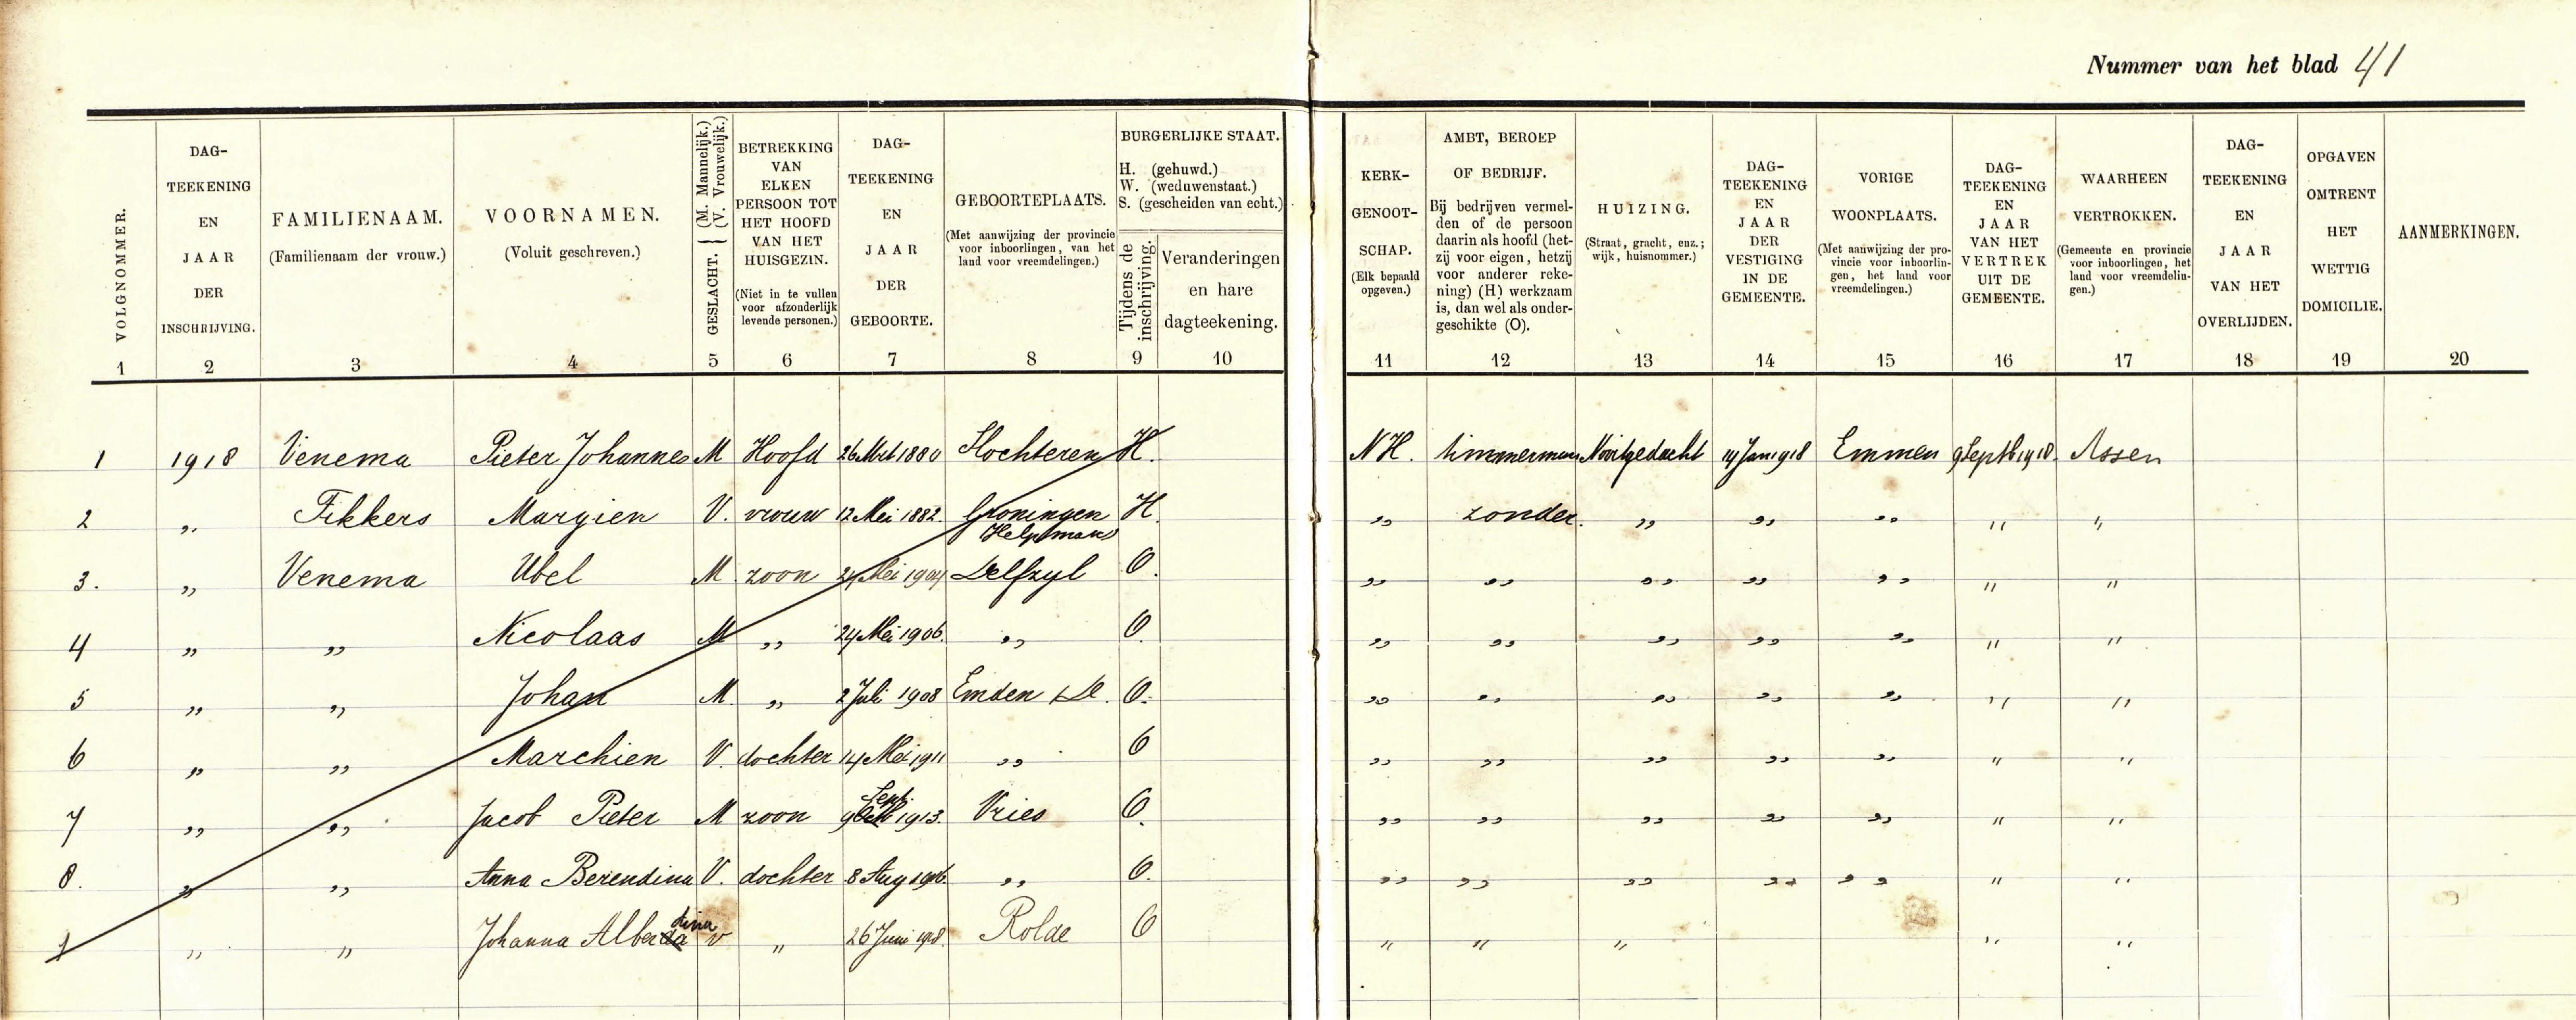 Nummer van het blad 41
VOLGNOMMER.
DAG-
TEEKENING
EN
JAAR
DER
INSCHRIJVING.
FAMILIENAAM.
(Familienaam der vrouw.)
VOORNAMEN.
(Voluit geschreven.)
GESLACHT. { (M. Mannelijk.)
(V. Vrouwelijk.)
BETREKKING
VAN
ELKEN
PERSOON TOT
HET HOOFD
VAN HET
HUISGEZIN.
(Niet in te vullen
voor afzonderlijk
levende personen.)
DAG-
TEEKENING
EN
JAAR
DER
GEBOORTE.
GEBOORTEPLAATS.
(Met aanwijzing der provincie
voor inboorlingen, van het
land voor vreemdelingen.)
BURGERLIJKE STAAT.
H. (gehuwd.)
W. (weduwenstaat.)
S. (gescheiden van echt.)
Tijdens de
inschrijving.
Veranderingen
en hare
dagteekening.
KERK-
GENOOT-
SCHAP.
(Elk bepaald
opgeven.)
AMBT, BEROEP
OF BEDRIJF.
Bij bedrijven vermel-
den of de persoon
daarin als hoofd (het-
zij voor eigen, hetzij
voor anderer reke-
ning) (H) werkzaam
is, dan wel als onder-
geschikte (O).
HUIZING.
(Straat, gracht, enz.;
wijk, huisnommer.)
DAG-
TEEKENING
EN
JAAR
DER
VESTIGING
IN DE
GEMEENTE.
VORIGE
WOONPLAATS.
(Met aanwijzing der pro-
vincie voor inboorlin-
gen, het land voor
vreemdelingen.)
DAG-
TEEKENING
EN
JAAR
VAN HET
VERTREK
UIT DE
GEMEENTE.
WAARHEEN
VERTROKKEN.
(Gemeente en provincie
voor inboorlingen, het
land voor vreemdelin-
gen.)
DAG-
TEEKENING
EN
JAAR
VAN HET
OVERLIJDEN.
OPGAVEN
OMTRENT
HET
WETTIG
DOMICILIE.
AANMERKINGEN.
1 2 3 4 5 6 7 8 9 10 11 12 13 14 15 16 17 18 19 20
1 1918 Venema Pieter Johannes M Hoofd 26 Mrt 1880 Slochteren H. N H. timmerman Nooitgedacht Jan 1918 Emmen 9 Septb 1918. Assen
2 ,, Fikkers Margien V. vrouw 12 Mei 1882. Groningen H. ,, zonder. ,, ,, ,, ,, ,,
Helpman
3. ,, Venema Ubel M zoon Mei 1904 Delfzyl O. ,, ,, ,, ,, ,, ,, ,,
4 ,, ,, Nicolaas M ,, 24 Mei 1906. ,, O. ,, ,, ,, ,, ,, ,, ,,
5 ,, ,, Johan M. ,, 2 Juli 1908 Emden O. ,, ,, ,, ,, ,, ,, ,,
6 ,, ,, Marchien V. dochter 14 Mei 1911 ,, O ,, ,, ,, ,, ,, ,, ,,
7 ,, ,, Jacob Pieter M zoon 9 Sept. 1913. Vries O. ,, ,, ,, ,, ,, ,, ,,
8. ,, ,, Anna Berendina V. dochter 8 Aug 1916. ,, O. ,, ,, ,, ,, ,, ,, ,,
,, ,, Johanna Alberdina V ,, 26 Juni 1918. Rolde O ,, ,, ,, ,, ,,